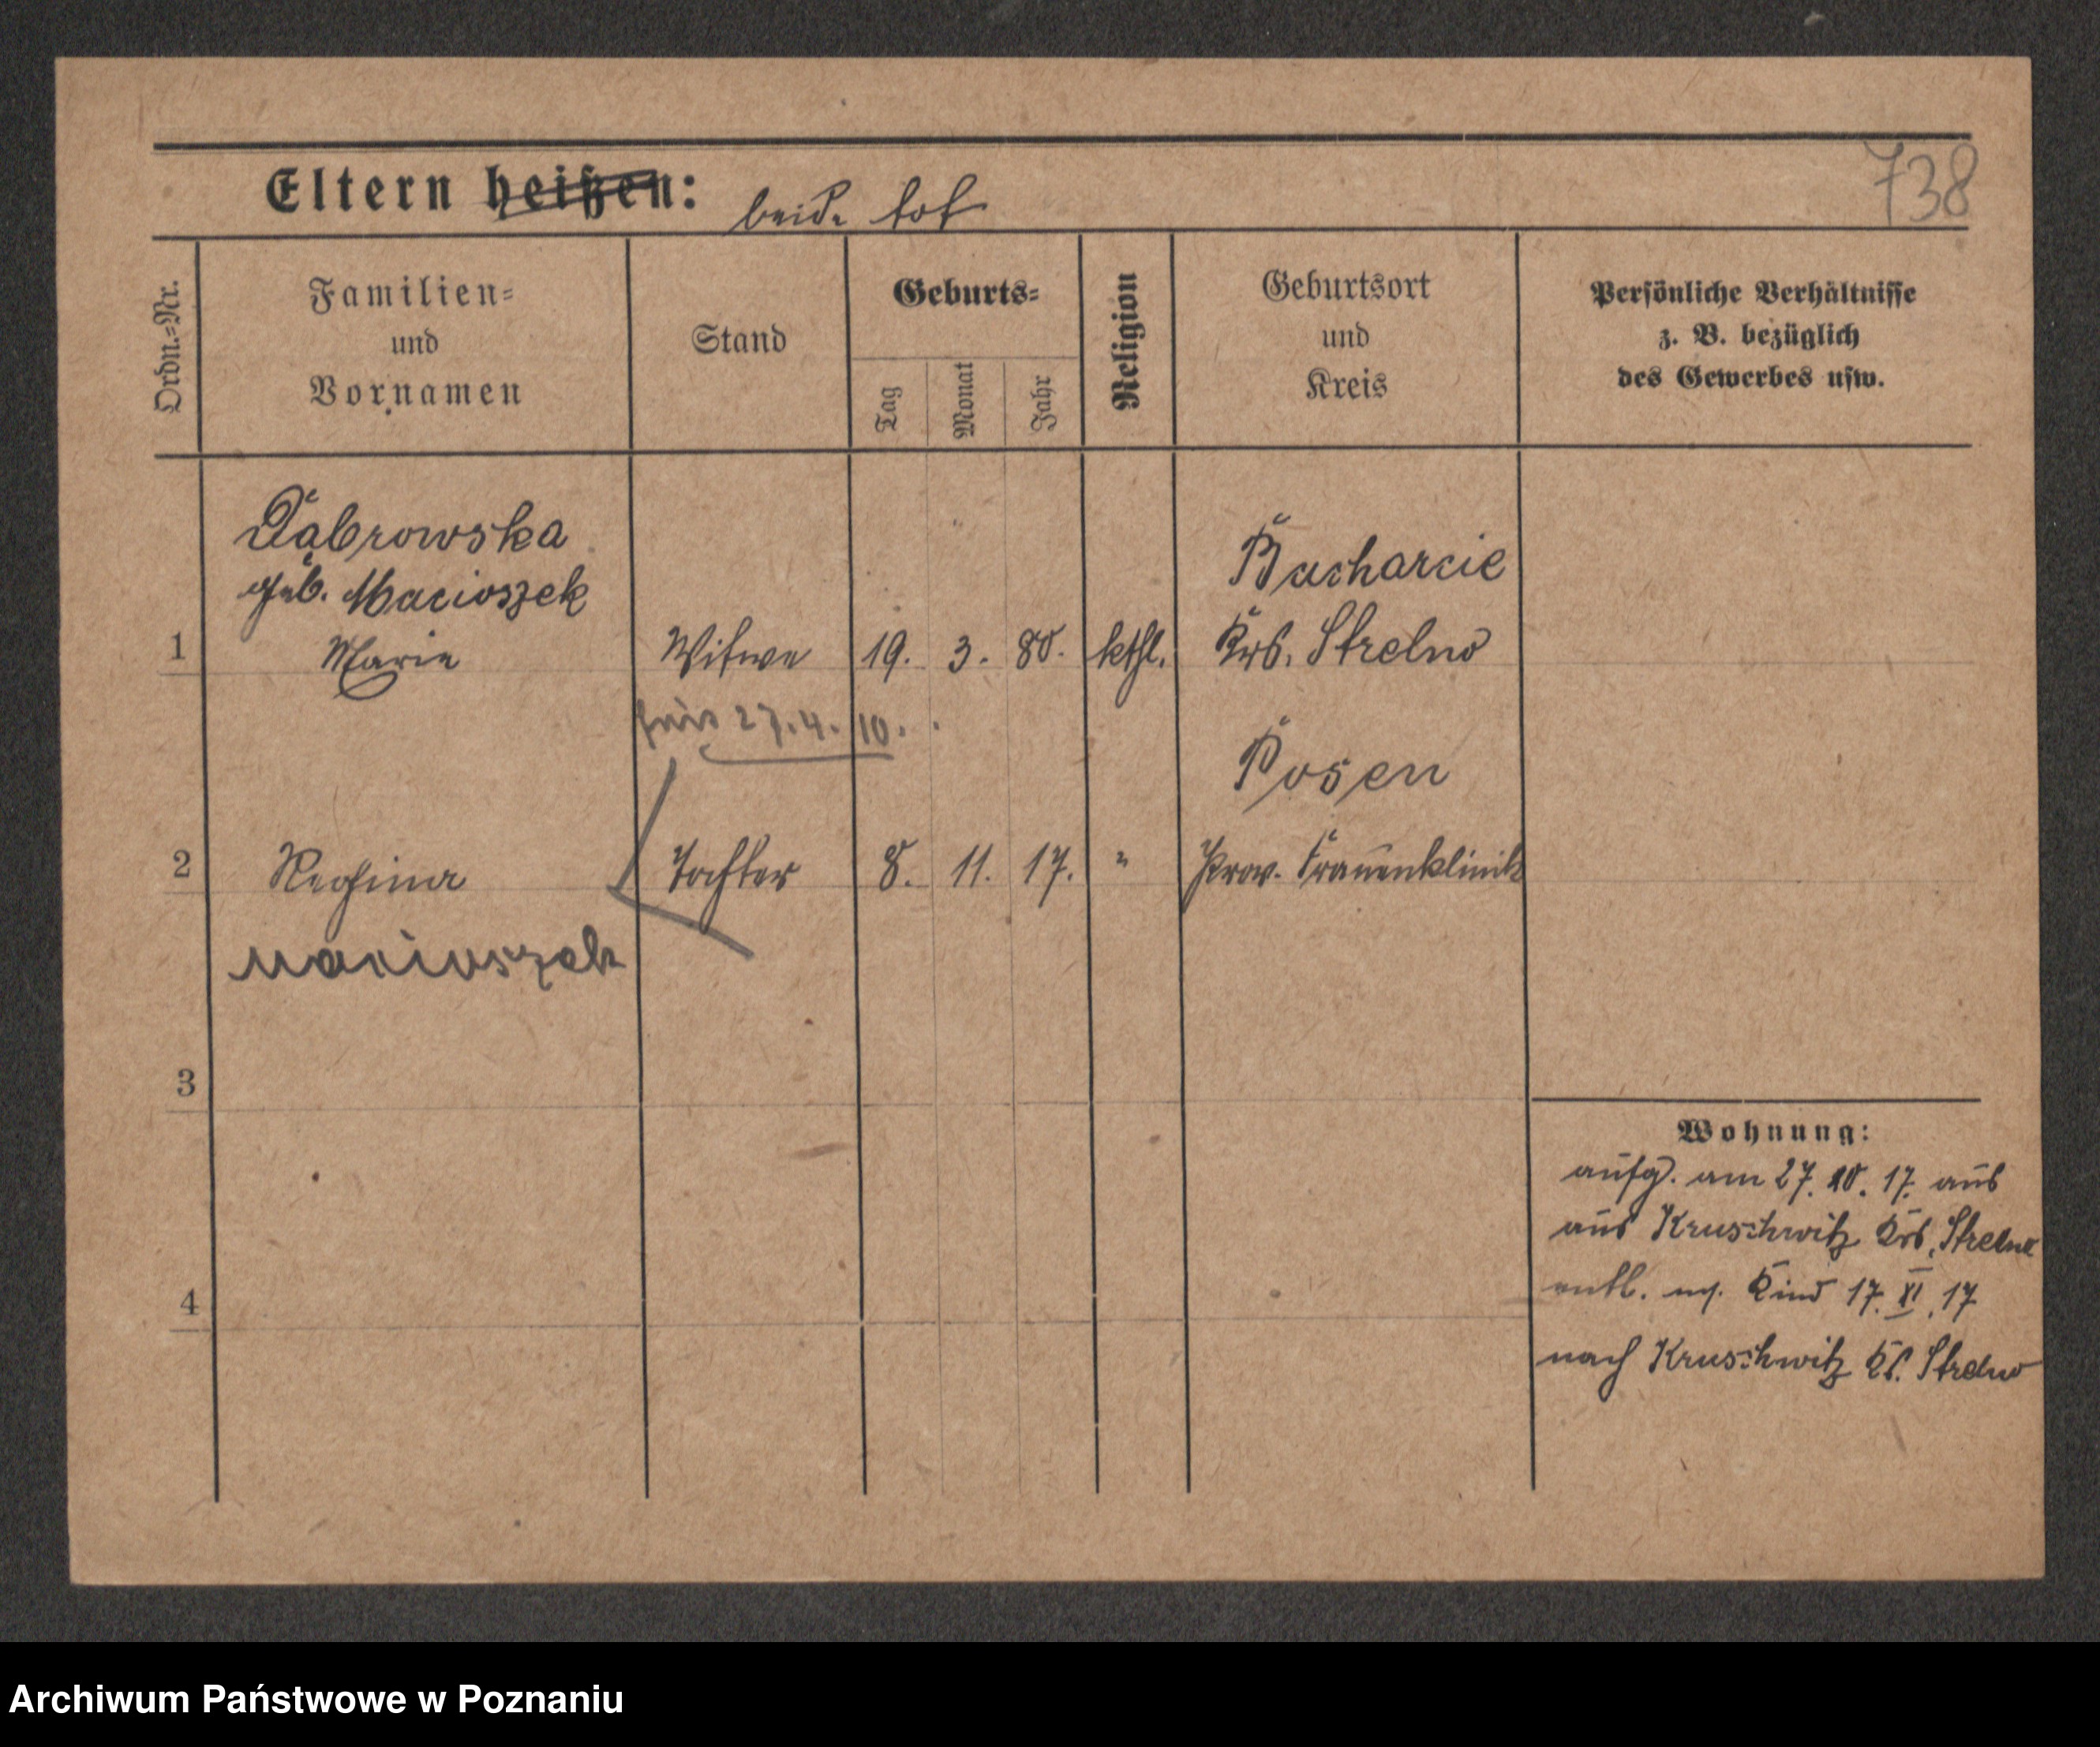 738
Eltern heißen: beide tot
Ordn.=Nr.
Familien=
und
Vornamen
Stand
Geburts=
Tag
Monat
Jahr
Religion
Geburtsort
und
Kreis
Persönliche Verhältnisse
z. B. bezüglich
des Gewerbes usw.
Dąbrowska
geb. Macioszek
1 Marie Witwe 19. 3. 80. kthl.
Bacharcie
Krs. Strelno
27.4.10.
Posen
2 Regina Tochter 8. 11. 17. " Prov. Frauenklinik
Macioszek
3
4
Wohnung:
aufg. am 27. 10. 17. aus
aus Kruschwitz Krs. Strelno
entl. m. Kind 17. XI. 17
nach Kruschwitz Kr. Strelno
Archiwum Państwowe w Poznaniu